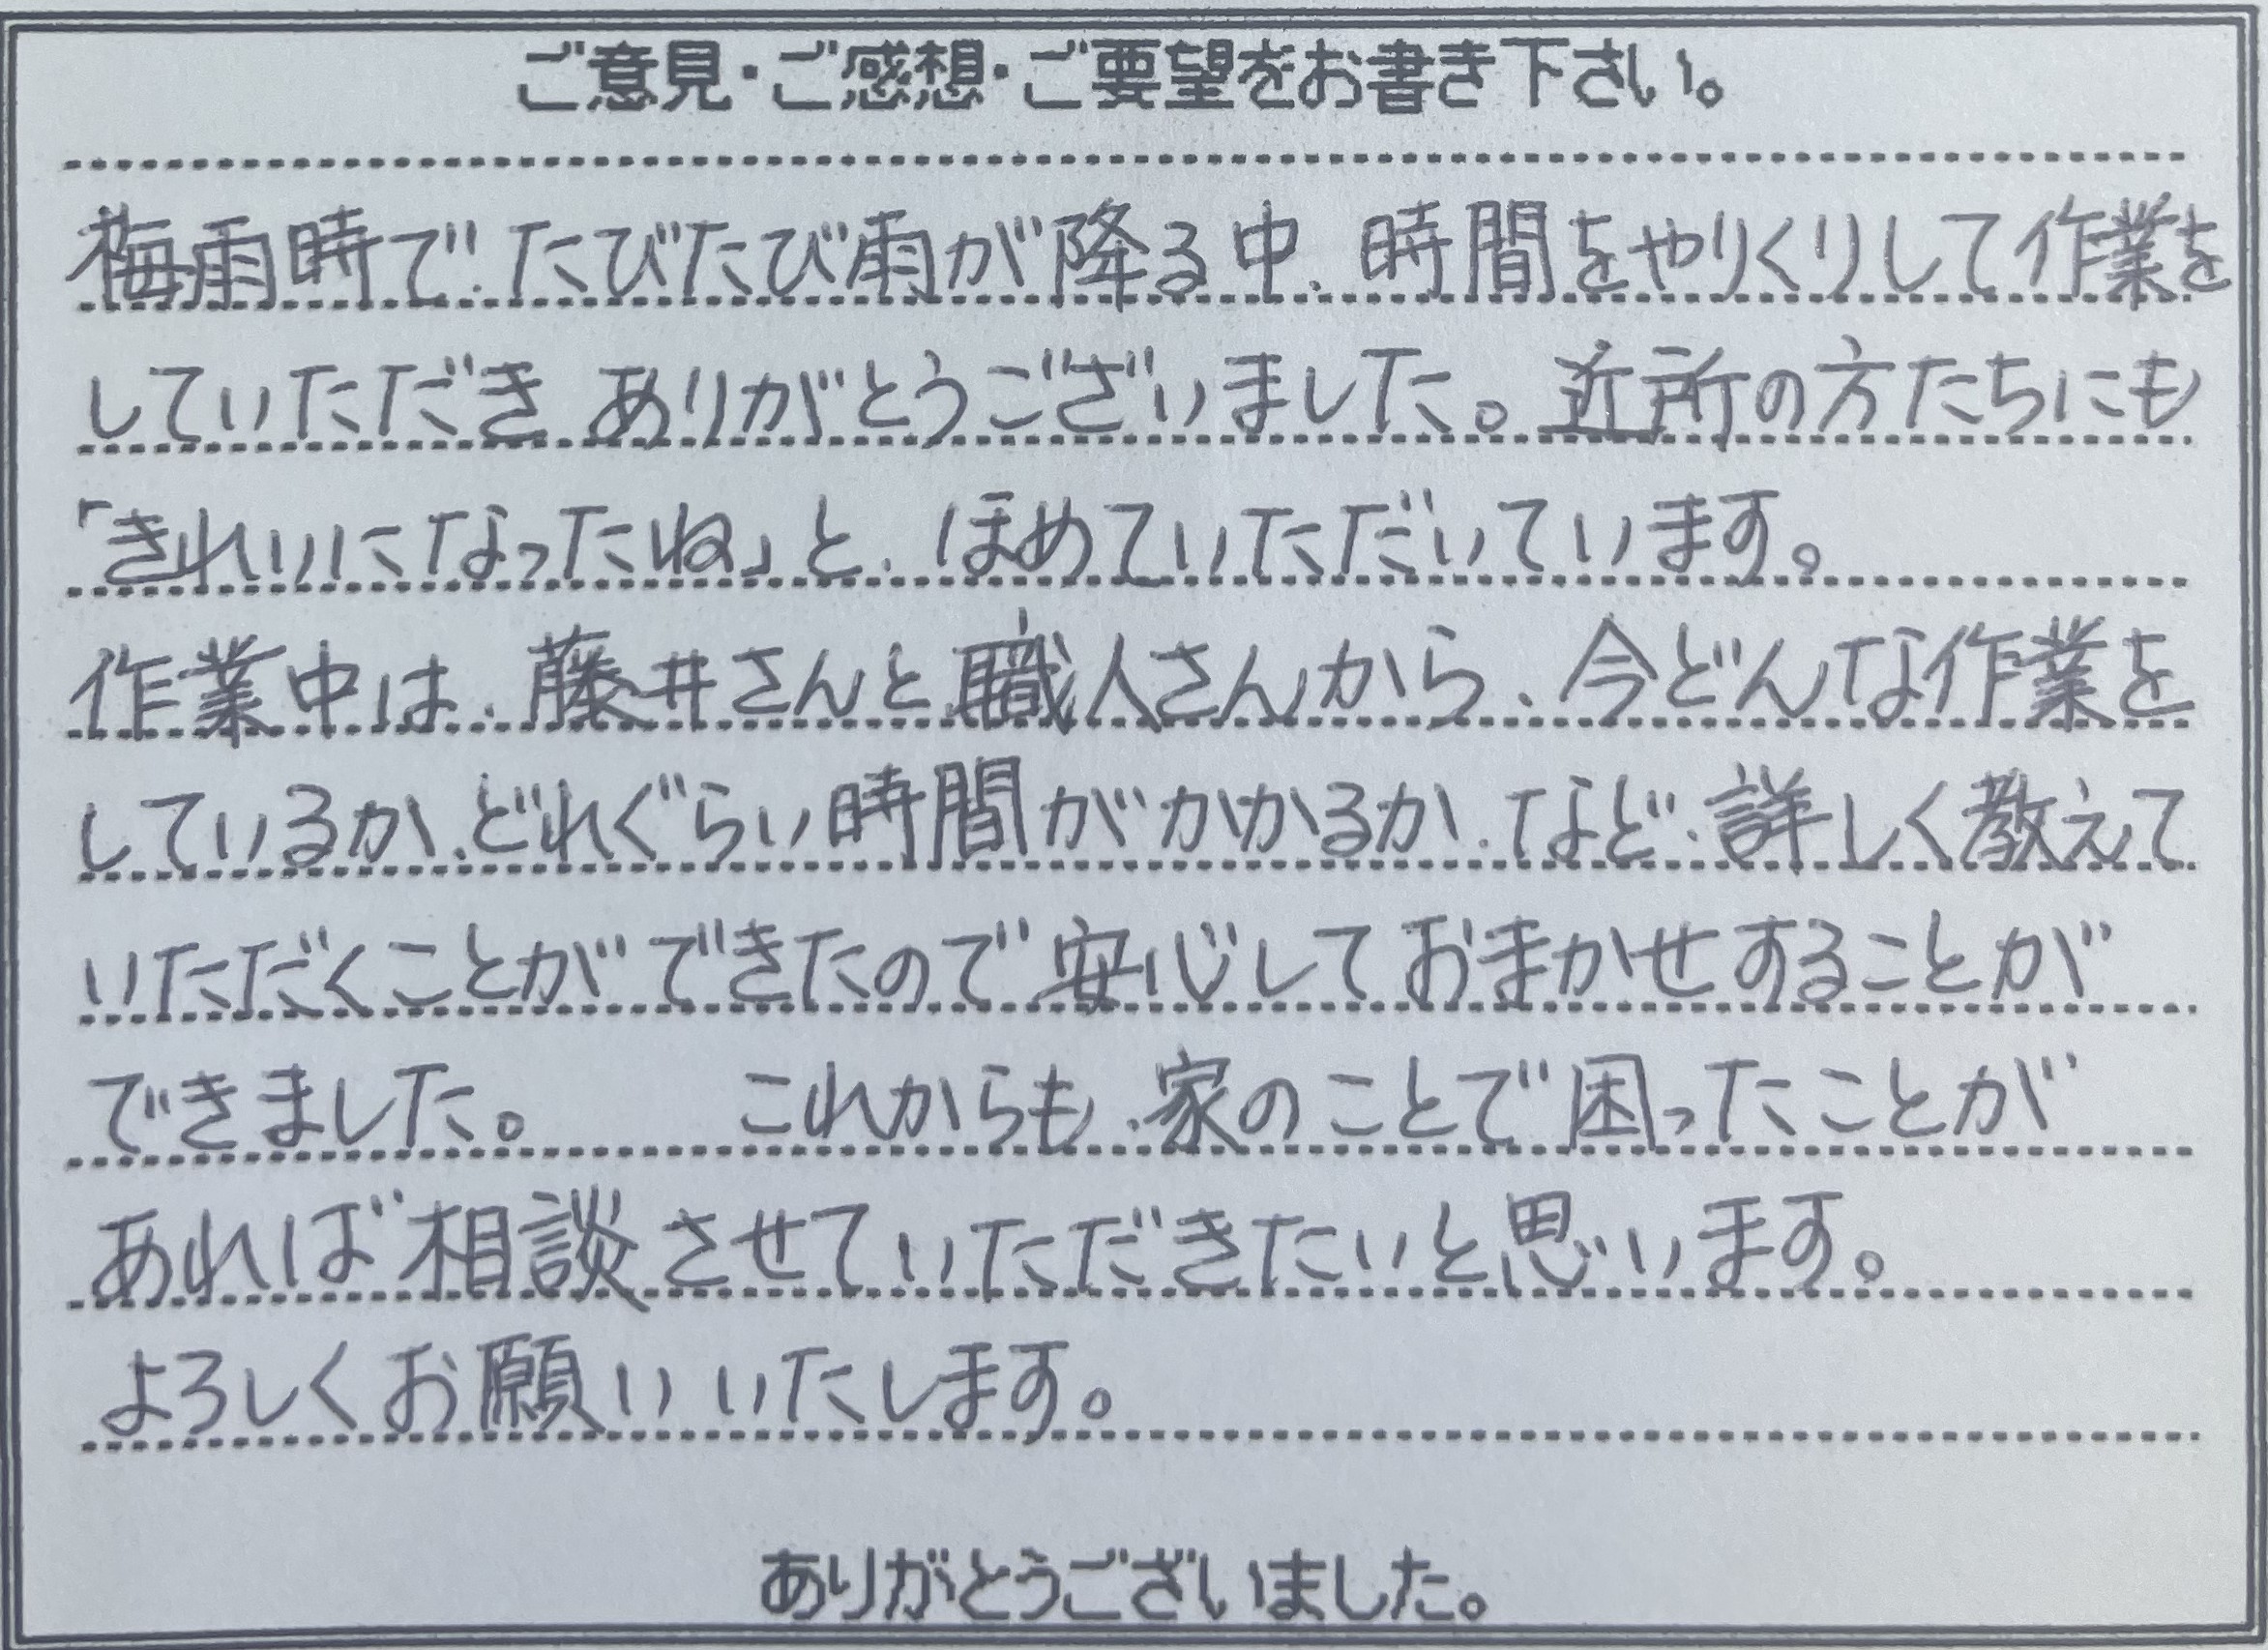 ご意見・ご感想・ご要望をお書き下さい。
梅雨時で、たびたび雨が降る中、時間をやりくりして作業を
していただき ありがとうございました。近所の方たちにも
「きれいになったね」と、ほめていただいています。
作業中は、藤井さんと職人さんから、今どんな作業を
しているか、どれぐらい時間がかかるか、など、詳しく教えて
いただくことができたので安心しておまかせすることが
できました。 これからも、家のことで困ったことが
あれば相談させていただきたいと思います。
よろしくお願いいたします。
ありがとうございました。